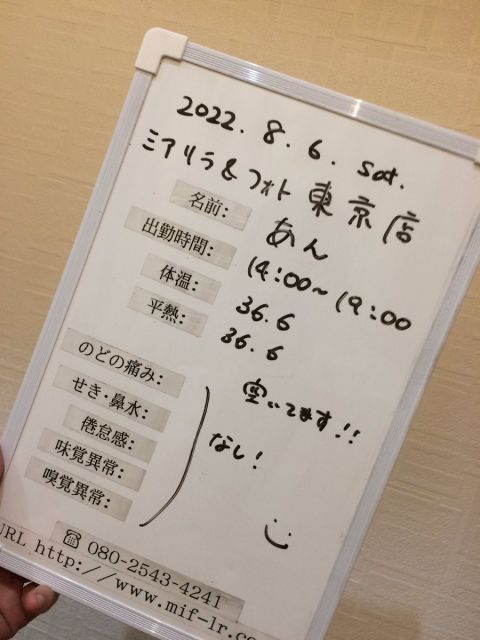 2022. 8. 6. Sat.
ミアリラ&フォト 東京店
名前: あん
出勤時間: 14:00~19:00
体温: 36.6
平熱: 36.6
空いてます!!
のどの痛み:
せき・鼻水:
倦怠感: なし!
味覚異常:
嗅覚異常:
☎ 080-2543-4241
URL http://www.mif-lr.co